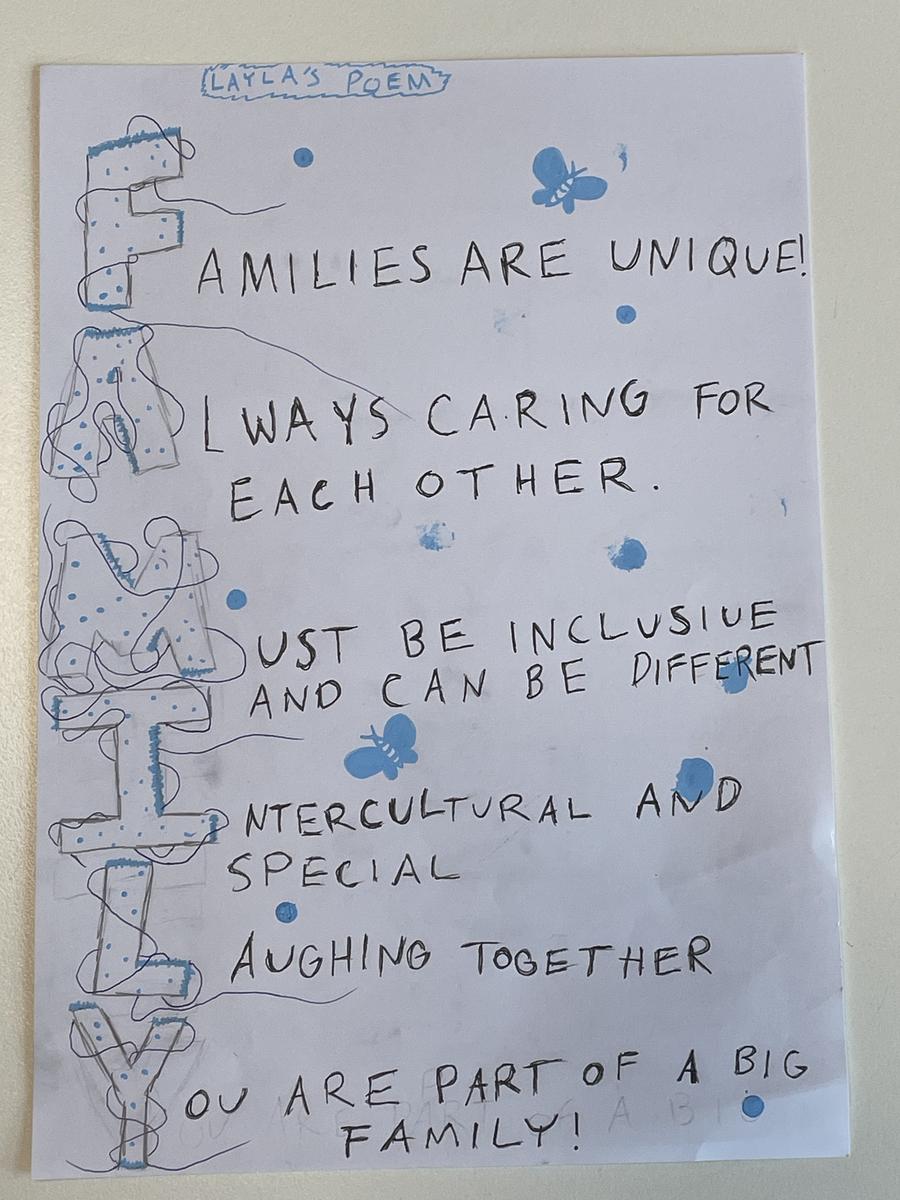 LAYLA'S POEM
FAMILIES ARE UNIQUE!
ALWAYS CARING FOR
EACH OTHER.
MUST BE INCLUSIVE
AND CAN BE DIFFERENT
INTERCULTURAL AND
SPECIAL
LAUGHING TOGETHER
YOU ARE PART OF A BIG
FAMILY!